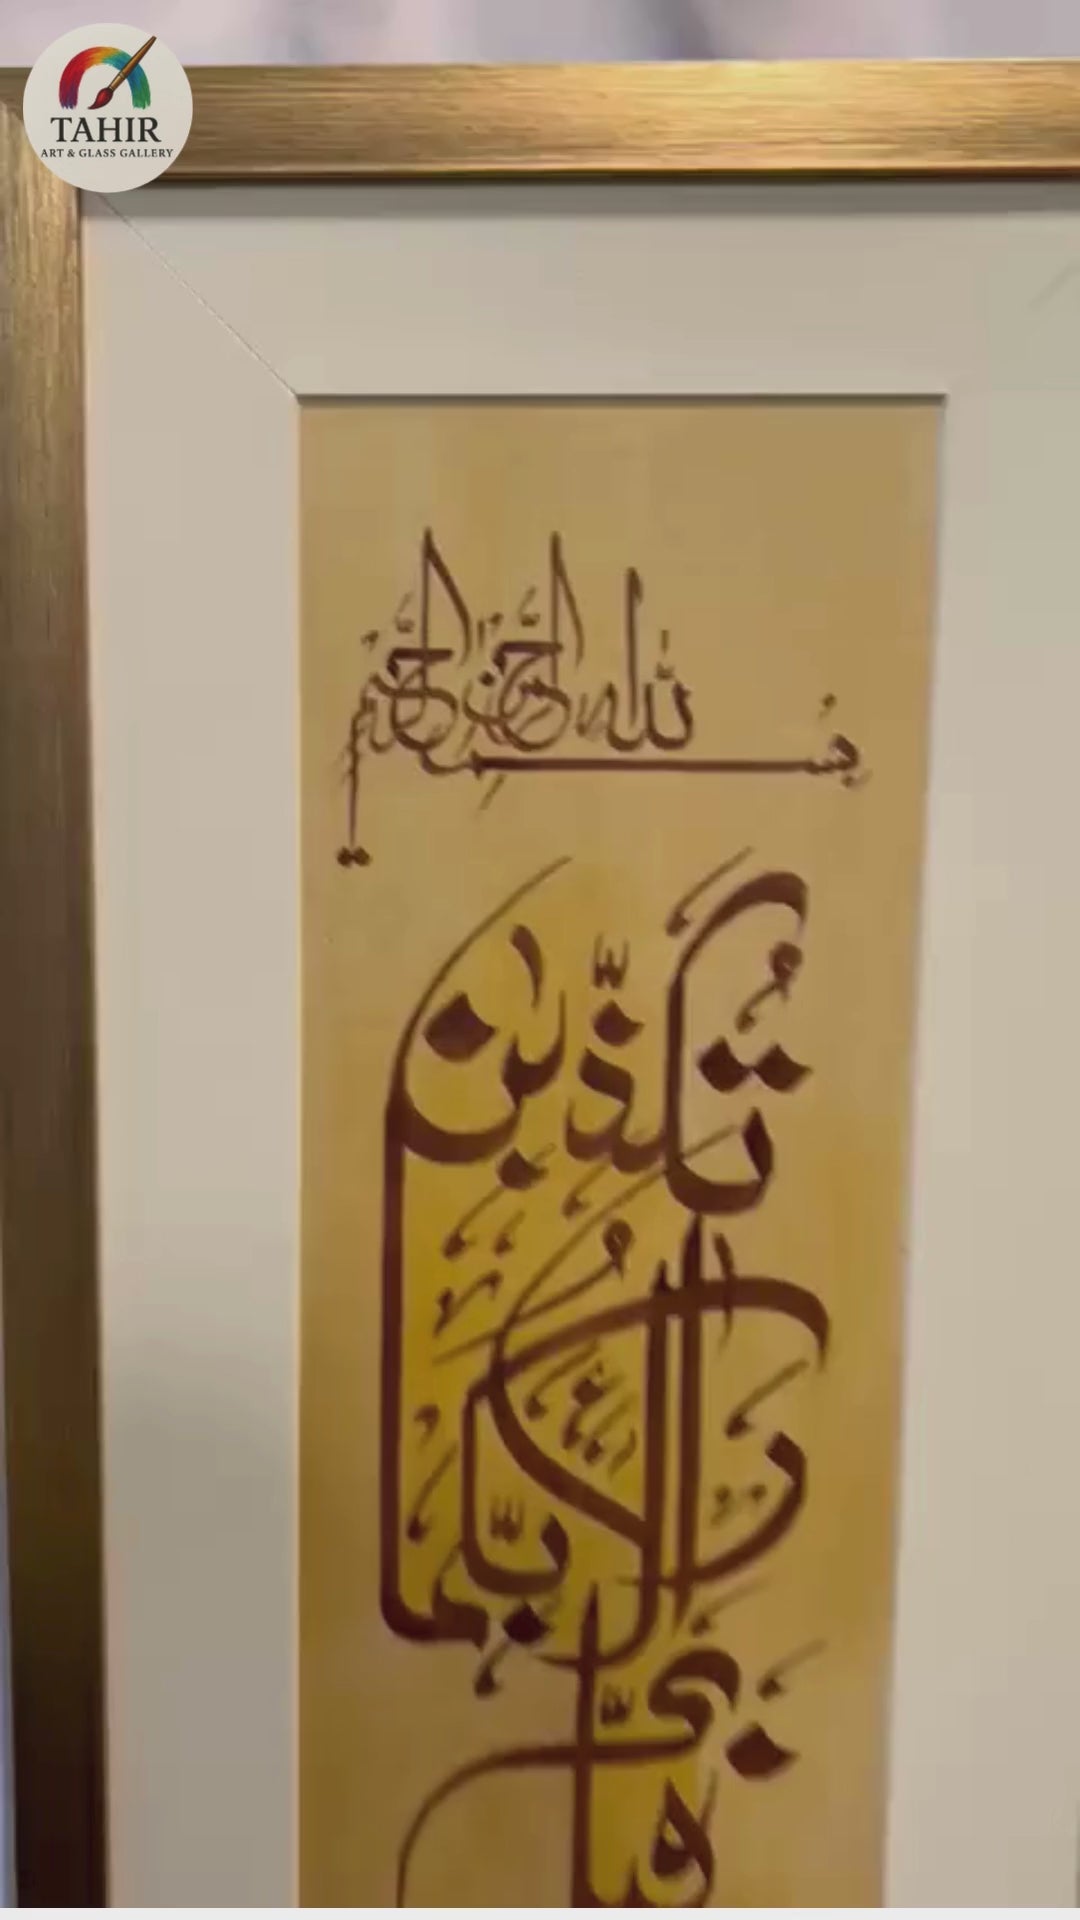 TAHIR
ART & GLASS GALLERY
بسم الله الرحمن الرحيم
فبأي آلاء ربكما تكذبان